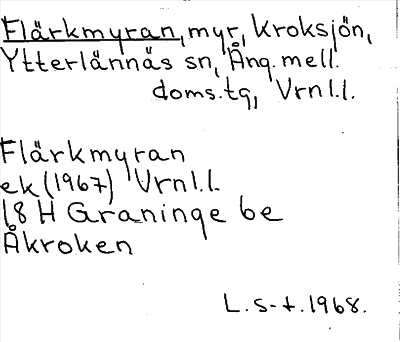 Flärkmyran, myr, Kroksjön,
Ytterlännäs sn, Ång. mell.
doms.tg, Vrnl.l.
Flärkmyran
ek (1967) Vrnl.l.
18 H Graninge 6e
Åkroken
L. S-t. 1968.